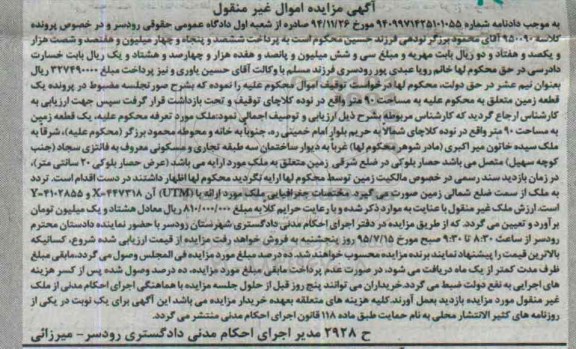 آگهی مزایده اموال غیر منقول
به موجب دادنامه شماره ۹۴۰۹۹۷۱۴۲۵۱۰۱۰۵۵ مورخ ۹۴/۱۱/۲۶ صادره از شعبه اول دادگاه عمومی حقوقی رودسر و در خصوص پرونده
کلاسه ۹۵۰۰۹۰ آقای محمود برزگر نودهی فرزند حسین محکوم است به پرداخت ششصد و پنجاه و چهار میلیون و هفتصد و شصت هزار
و یکصد و هفتاد و دو ریال بابت مهریه و مبلغ سی و شش میلیون و پانصد و هفده هزار و چهارصد و هشتاد و یک ریال بابت خسارت
دادرسی در حق محکوم لها خانم رویا عبدی پور رودسری فرزند مسلم با وکالت آقای حسین یاوری و نیز پرداخت مبلغ ۳۲۷۴۹۰۰۰۰ ریال
بعنوان نیم عشر در حق دولت، محکوم لها درخواست توقیف اموال محکوم علیه را نموده که بشرح صورتجلسه مضبوط در پرونده یک
قطعه زمین متعلق به محکوم علیه به مساحت ۹۰ متر واقع در نوده کلاچای توقیف و تحت بازداشت قرار گرفت سپس جهت ارزیابی به
کارشناس ارجاع گردید که کارشناس مربوطه بشرح ذیل ارزیابی و توصیف اجمالی نمود:ملک مورد تعرفه محکوم علیه، یک قطعه زمین
به مساحت ۹۰ متر واقع در نوده کلاچای شمالا به حریم بلوار امام خمینی ره. جنوباً به خانه و محوطه محمود برزگر (محکوم علیه)، شرقا به
ملک سیده خاتون میر اکبری (مادر شوهر محکوم لها) غرباً به دیوار ساختمان سه طبقه تجاری و مسکونی معروف به فانتزی سجاد (جنب
کوچه سهیل) متصل می باشد حصار بلوکی در ضلع شرقی زمین متعلق به ملک مورد ارایه می باشد (عرض حصار بلوکی ۲۰ سانتی متر)،
در زمان بازدید سند رسمی در خصوص مالکیت زمین توسط محکوم لها ارایه نگردید محکوم لها اظهار داشتند در دست اقدام است. تردد
به ملک از سمت ضلع شمالی زمین صورت می گیرد. مختصات جغرافیایی ملک مورد ارائه با (UTM) آن X=۴۴۷۳۱۸ و Y=۴۱۰۲۸۵۵
است. ارزش ملک غیر منقول با عنایت به موارد ذکر شده و با رعایت حرایم کلا به مبلغ ۸۱۰/۰۰۰/۰۰۰ ریال معادل هشتاد و یک میلیون تومان
برآورد و تعیین می گردد. که از طریق مزایده در دفتر اجرای احکام مدنی دادگستری شهرستان رودسر با حضور نماینده دادستان محترم
رودسر از ساعت ۸:۳۰ تا ۹:۳۰ صبح مورخ ۹۵/۷/۱۵ روز پنجشنبه به فروش خواهد رفت مزایده از قیمت ارزیابی شده شروع، کسانیکه
بالاترین قیمت را پیشنهاد نمایند برنده مزایده محسوب خواهند شد. ده درصد مبلغ مورد مزایده فی المجلس وصول می گردد،مابقی مبلغ
ظرف مدت کمتر از یک ماه دریافت می شود، در صورت عدم پرداخت مابقی مبلغ مورد مزایده، ده درصد وصول شده پس از کسر هزینه
های اجرایی به نفع دولت ضبط می گردد.خریداران می توانند پنج روز قبل از حلول جلسه مزایده با هماهنگی اجرای احکام مدنی از ملک
غیر منقول مورد مزایده بازدید بعمل آورند.کلیه هزینه های متعلقه بعهده خریدار مزایده می باشد این آگهی برای یک نوبت در یکی از
روزنامه های کثیر الانتشار محلی به نام حمایت طبق ماده ۱۱۸ قانون اجرای احکام مدنی منتشر می گردد.
ح ۲۹۲۸ مدیر اجرای احکام مدنی دادگستری رودسر- میرزائی